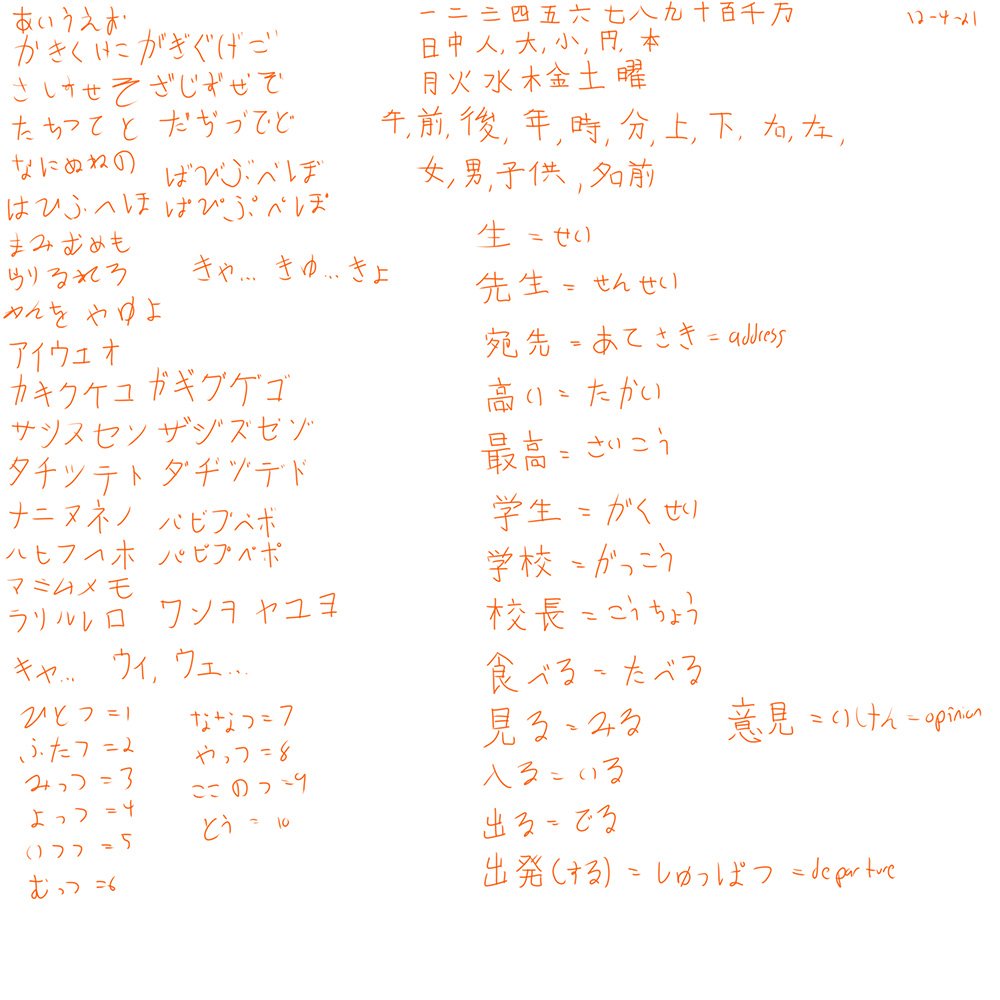 あいうえお
かきくけこ がぎぐげご
さしすせそ ざじずぜぞ
たちつてと だぢづでど
なにぬねの ばびぶべぼ
はひふへほ ぱぴぷぺぽ
まみむめも
らりるれろ きゃ... きゅ...きょ
わんを やゆよ
アイウエオ
カキクケコ ガギグゲゴ
サシスセソ ザジズゼゾ
タチツテト ダヂヅデド
ナニヌネノ バビブベボ
ハヒフヘホ パピプペポ
マミムメモ
ラリルレロ ワンヲ ヤユヨ
キャ... ウィ, ウェ...
ひとつ=1
ふたつ=2
みっつ=3
よっつ=4
いつつ=5
むっつ=6
ななつ=7
やっつ=8
ここのつ=9
とう=10
一二三四五六七八九十百千万
12-4-21
日中人,大,小,円,本
月火水木金土曜
午,前,後,年,時,分,上,下,右,左,
女,男,子供,名前
生=せい
先生=せんせい
宛先=あてさき=address
高い=たかい
最高=さいこう
学生=がくせい
学校=がっこう
校長=こうちょう
食べる=たべる
見る=みる 意見=いけん=opinion
入る=いる
出る=でる
出発(する)=しゅっぱつ=departure